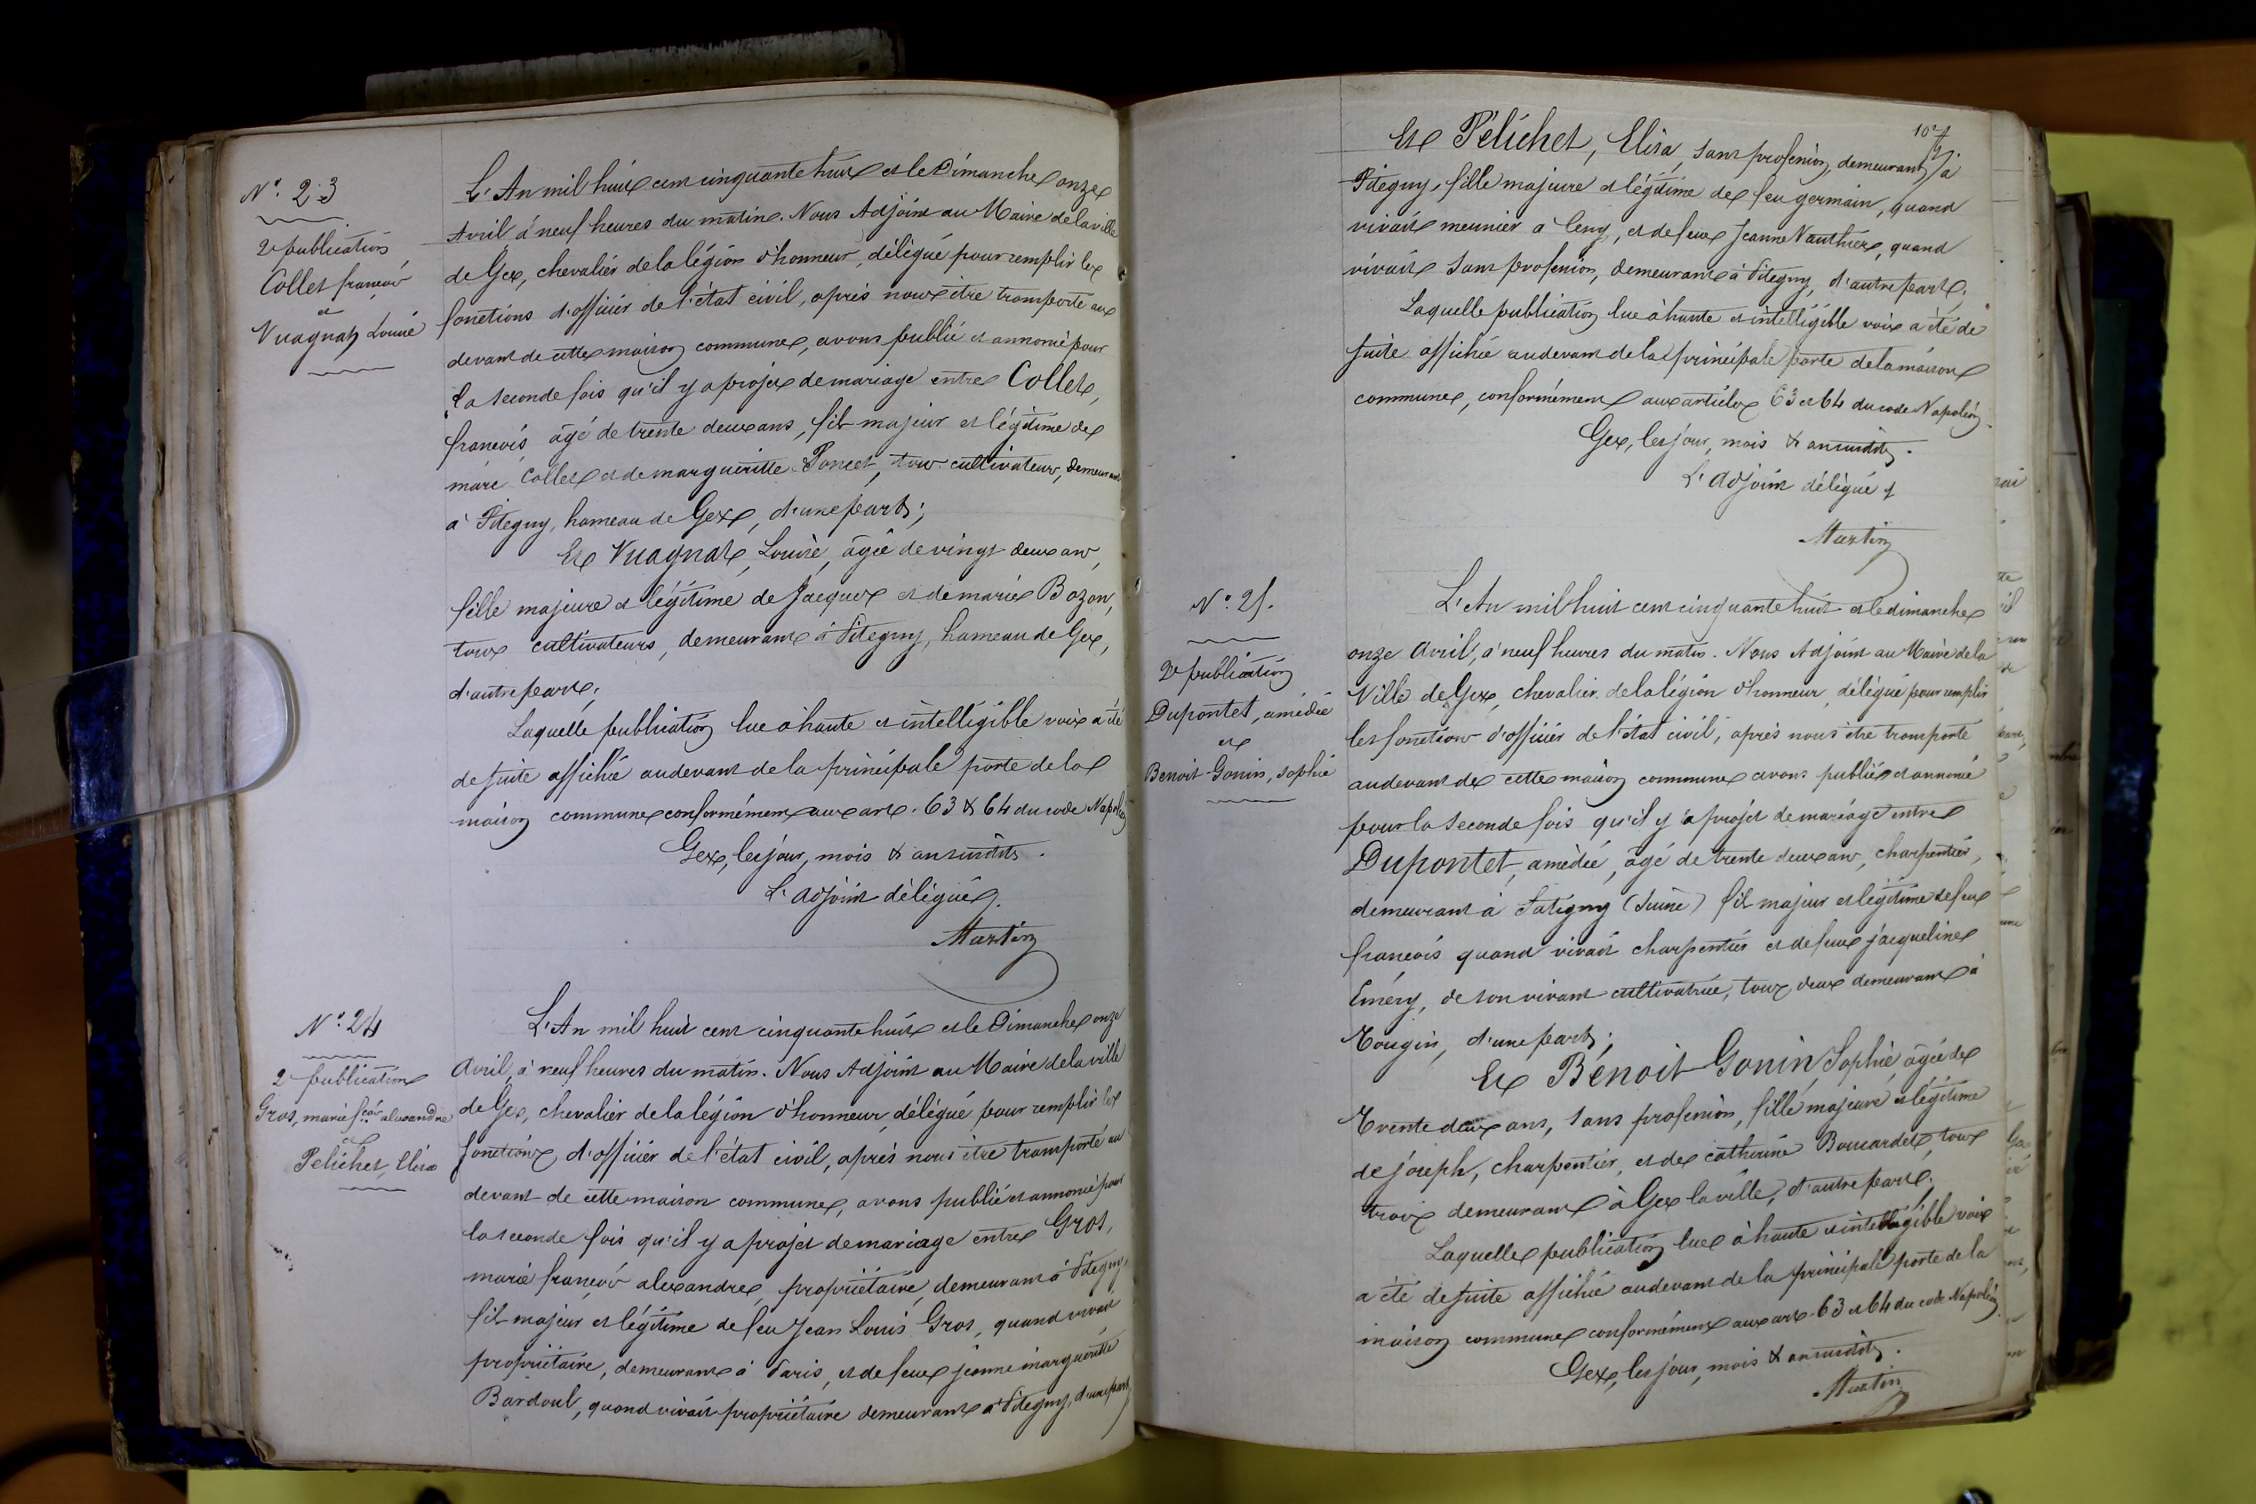 N.° 23
2e publication
Collet françois
et
Vuagnat Louise
L'An mil huit cent cinquante huit et le Dimanche onze
Avril à neuf heures du matin. Nous Adjoint au Maire de la ville
de Gex, chevalier de la légion d'honneur, délégué pour remplir les
fonctions d'officier de l'état civil, après nous être transporté au
devant de cette maison commune, avons publié et annoncé pour
la seconde fois qu'il y a projet de mariage entre Collet,
françois âgé de trente deux ans, fils majeur et légitime de
marc Collet et de marguéritte Poncet, tous cultivateurs, demeurant
à Pitegny, hameau de Gex, d'une part;
Et Vuagnat, Louise, âgée de vingt deux ans,
fille majeure et légitime de Jacques et de marie Bozon,
tous cultivateurs, demeurant à Pitegny, hameau de Gex,
d'autre part;
Laquelle publication lue à haute et intelligible voix a été
de suite affichée au devant de la principale porte de la
maison commune conformément aux art. 63 & 64 du code Napoléon
Gex, les jour, mois & an susdits.
L'adjoint délégué.
Martin
N.° 24
2e publication
Gros, marie fçois alexandre
et
Pelichet, Elisa
L'An mil huit cent cinquante huit et le Dimanche onze
Avril, à neuf heures du matin. Nous Adjoint au Maire de la ville
de Gex, chevalier de la légion d'honneur, délégué pour remplir les
fonctions d'officier de l'état civil, après nous être transporté au
devant de cette maison commune, avons publié et annoncé pour
la seconde fois qu'il y a projet de mariage entre Gros,
marie françois alexandre, propriétaire, demeurant à Pitegny,
fils majeur et légitime de feu Jean Louis Gros, quand vivait
propriétaire, demeurant à Paris, et de feue jeanne marguéritte
Bardoul, quand vivait propriétaire demeurant à Pitegny, d'une part,
107
Et Pélichet, Elisa, sans profession, demeurant à
Pitegny, fille majeure et légitime de feu germain, quand
vivait meunier à Cessy, et de feue Jeanne Vauthier, quand
vivait sans profession, demeurant à Pitegny, d'autre part;
Laquelle publication lue à haute et intelligible voix a été de
suite affichée au devant de la principale porte de la maison
commune, conformément aux articles 63 et 64 du code Napoléon.
Gex, les jour, mois & an susdits.
L'adjoint délégué
Martin
N.° 25.
2e publication
Dupontet, amédée
et
Benoit-Gonin, sophie
L'An mil huit cent cinquante huit et le dimanche
onze Avril, à neuf heures du matin. Nous Adjoint au Maire de la
Ville de Gex, chevalier de la légion d'honneur, délégué pour remplir
les fonctions d'officier de l'état civil, après nous être transporté
au devant de cette maison commune avons publié et annoncé
pour la seconde fois qu'il y a projet de mariage entre
Dupontet, amédée, âgé de trente deux ans, charpentier,
demeurant à Satigny (Suisse) fils majeur et légitime de feu
françois quand vivait charpentier et de feue jacqueline
Eméry, de son vivant cultivatrice, tous deux demeurant à
Tougin, d'une part;
Et Benoit-Gonin Sophie âgée de
Trente deux ans, sans profession, fille majeure et légitime
de joseph, charpentier, et de catherine Boucardet, tous
trois demeurant à Gex la ville, d'autre part.
Laquelle publication lue à haute et intelligible voix
a été de suite affichée au devant de la principale porte de la
maison commune conformément aux art. 63 et 64 du code Napoléon.
Gex, les jour, mois & an susdits.
Martin